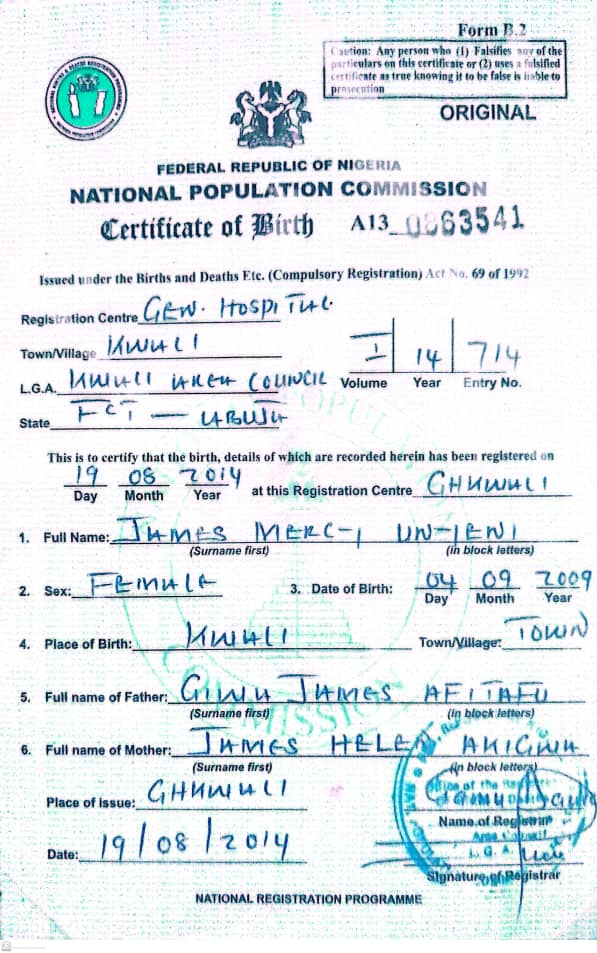 Form B.2
Caution: Any person who (1) Falsifies any of the
particulars on this certificate or (2) uses a falsified
certificate as true knowing it to be false is liable to
prosecution
ORIGINAL
FEDERAL REPUBLIC OF NIGERIA
NATIONAL POPULATION COMMISSION
Certificate of Birth A13_0863541
Issued under the Births and Deaths Etc. (Compulsory Registration) Act No. 69 of 1992
Registration Centre GEN. HOSPITAL.
Town/Village KWALI
I 14 714
Volume Year Entry No.
L.G.A. KWALI AREA COUNCIL
State FCT — ABUJA
This is to certify that the birth, details of which are recorded herein has been registered on
19 08 2014 at this Registration Centre GHKWALI
Day Month Year
1. Full Name: JAMES MERC-I UN-IENI
(Surname first) (in block letters)
2. Sex: FEMALE 3. Date of Birth: 04 09 2009
Day Month Year
4. Place of Birth: KWALI Town/Village: TOWN
5. Full name of Father: GIWA JAMES AFITAFU
(Surname first) (in block letters)
6. Full name of Mother: JAMES HELEN AKIGWA
(Surname first) (in block letters)
Place of Issue: GHKWALI
Name of Registrar
Date: 19/08/2014
Signature of Registrar
NATIONAL REGISTRATION PROGRAMME